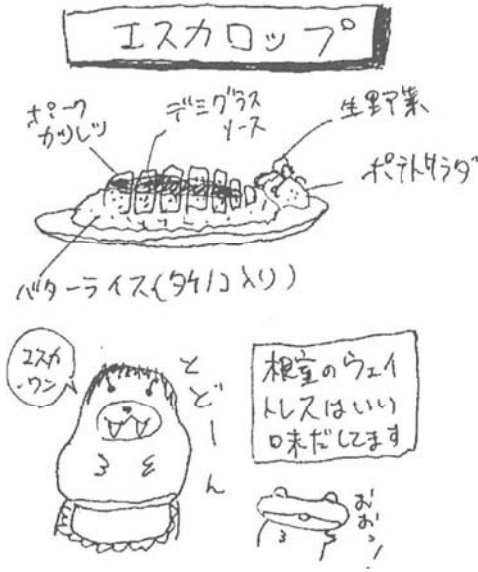 エスカロップ
ポーク
カツレツ
デミグラス
ソース
生野菜
ポテトサラダ
バターライス(タケノコ入り)
エスカ
ワン
とどーん
根室のウェイ
トレスはいい
味だしてます
おおっ!